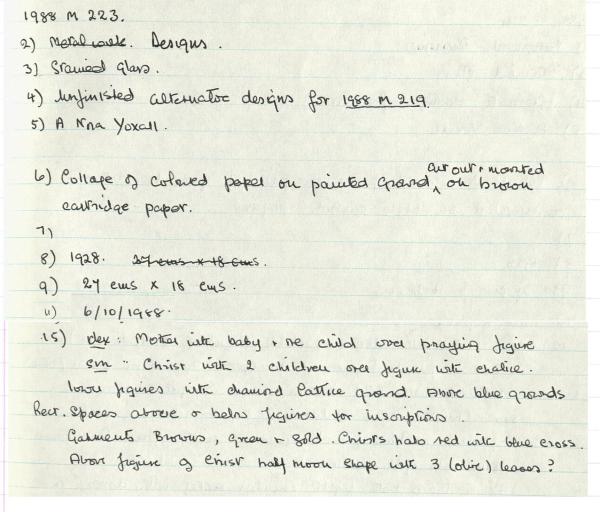 1988 M 223.
2) Metalwork. Designs.
3) Stained Glass.
4) Unfinished alternative designs for 1988 M 219
5) A Nna Yoxall.
6) Collage of coloured paper on painted ground cut out + mounted on brown
cartridge paper.
7)
8) 1928. 27 cms x 18 cms.
9) 27 cms x 18 cms.
11) 6/10/1988.
15) dex: Mother with baby + one child over praying figure
sin: Christ with 2 children over figure with chalice.
lower figures, with diamond lattice ground. Above blue grounds
Rect. Spaces above or below figures for inscriptions.
Garments Browns, green + gold. Christs halo red with blue cross.
Above figure of Christ half moon shape with 3 (olive) leaves?